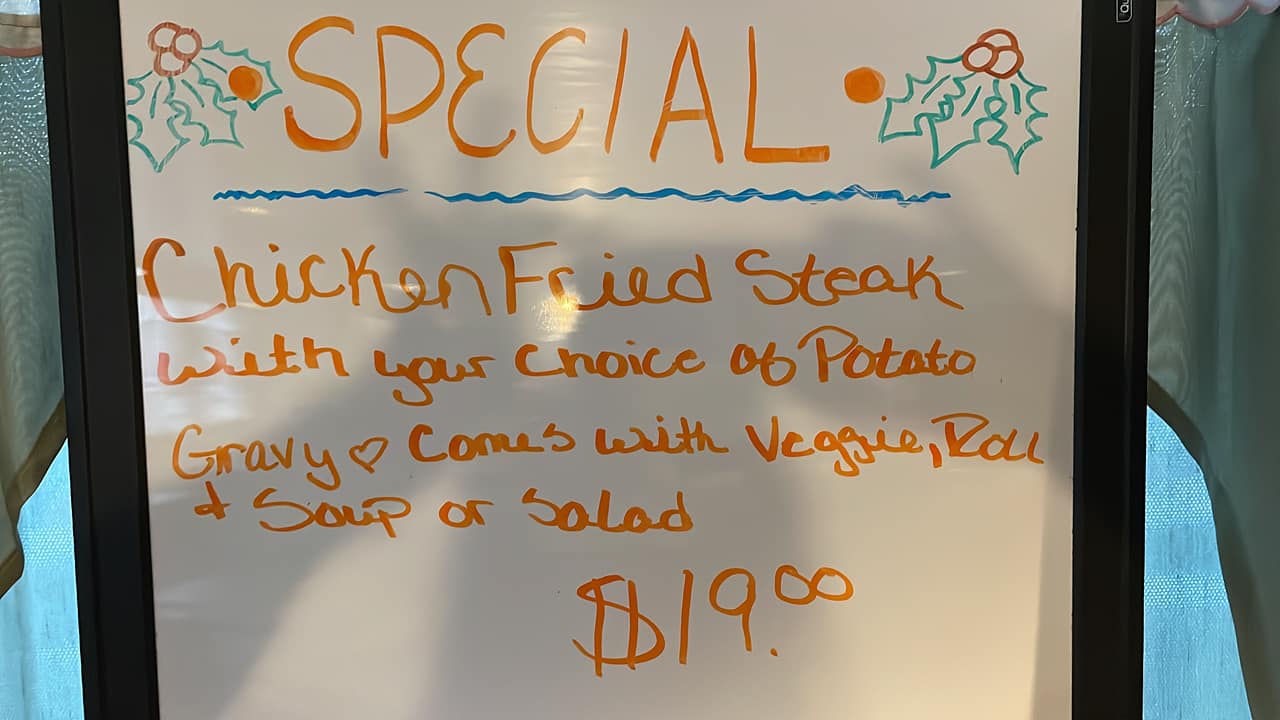 • SPECIAL •
Chicken Fried Steak
with your choice of Potato
Gravy ♡ Comes with Veggie, Roll
& Soup or Salad
$19.00